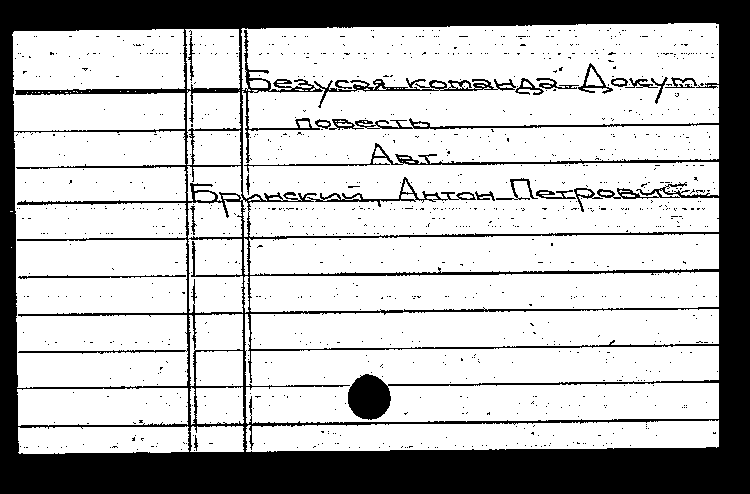 Безусая команда Докум.
повесть
Авт.
Бринский, Антон Петрович